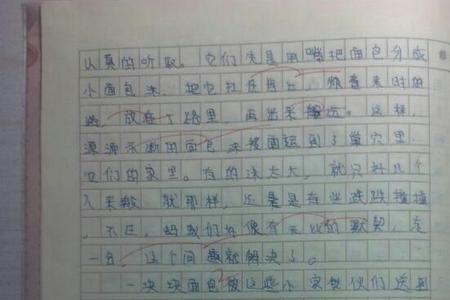 认真的听取。它们先是用嘴把面包分成
小面包末，把它扛在背上，顺着来时的
路，放在了路里，再出来搬运。这样，
源源不断的面包末被运到了巢穴里
它们的家里。有的沫太大，就只好几个
人来搬，就那样，还是是在些跌跌撞撞
，不过，蚂蚁们好像有无比的默契，左
一分，这个问题就解决了。
一块块面包被这些小家伙们送到